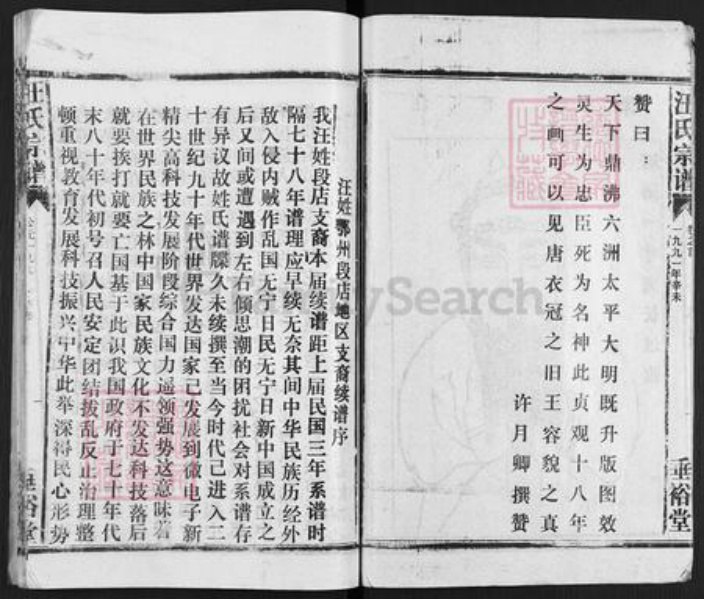 汪氏宗谱
一九九一年辛未
垂裕堂
赞曰：
天下鼎沸六洲太平大明既升版图效
灵生为忠臣死为名神此贞观十八年
之画可以见唐衣冠之旧王容貌之真
许月卿撰赞
汪姓鄂州段店地区支裔续谱序
我汪姓段店支裔本届续谱距上届民国三年系谱时
隔七十八年谱理应早续无奈其间中华民族历经外
敌入侵内贼作乱国无宁日民无宁日新中国成立之
后又间或遭遇到左右倾思潮的困扰社会对系谱存
有异议故姓氏谱牒久未续撰至当今时代已进入二
十世纪九十年代世界发达国家已发展到微电子新
精尖高科技发展阶段综合国力遥领强势这意味着
在世界民族之林中国家民族文化不发达科技落后
就要挨打就要亡国基于此识我国政府于七十年代
末八十年代初号召人民安定团结拨乱反正治理整
顿重视教育发展科技振兴中华此举深得民心形势
汪氏宗谱
垂裕堂
FamilySearch